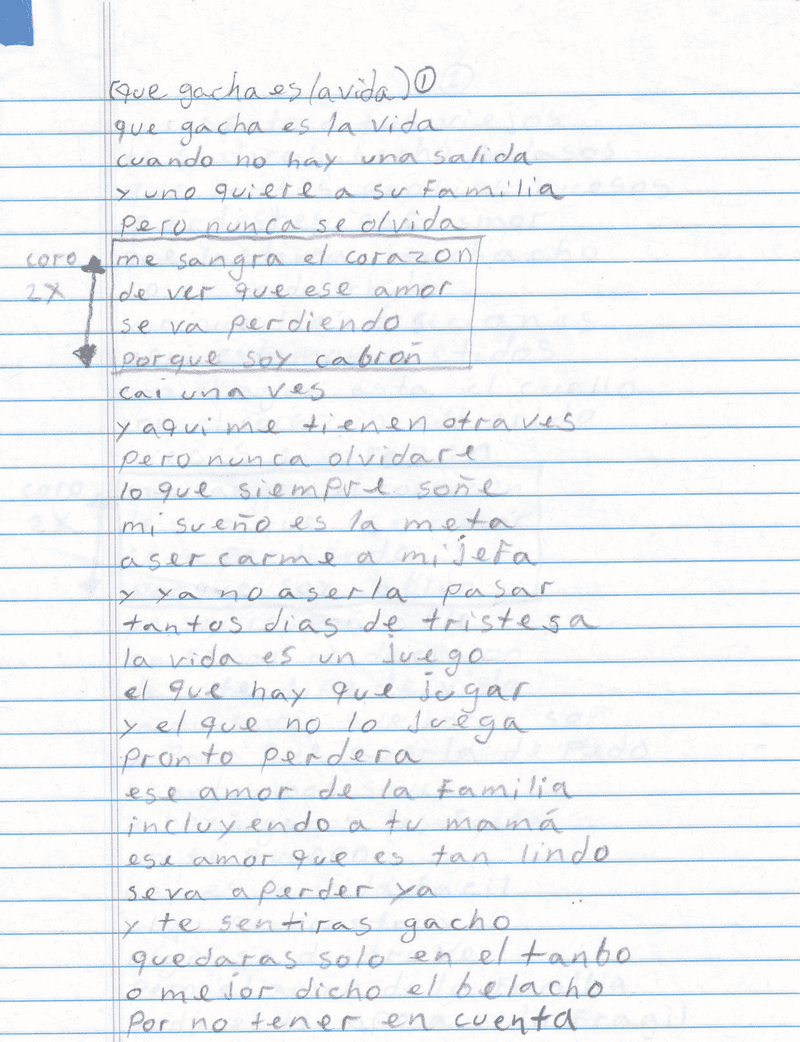 (que gacha es la vida) ①
que gacha es la vida
cuando no hay una salida
y uno quiere a su familia
pero nunca se olvida
coro 2X
me sangra el corazon
de ver que ese amor
se va perdiendo
porque soy cabroñ
cai una ves
y aqui me tienen otra ves
pero nunca olvidare
lo que siempre soñe
mi sueño es la meta
aser carme a mi jefa
y ya no aserla pasar
tantos dias de tristesa
la vida es un juego
el que hay que jugar
y el que no lo juega
pronto perdera
ese amor de la familia
incluyendo a tu mamá
ese amor que es tan lindo
se va a perder ya
y te sentiras gacho
quedaras solo en el tanbo
o mejor dicho el belacho
por no tener en cuenta